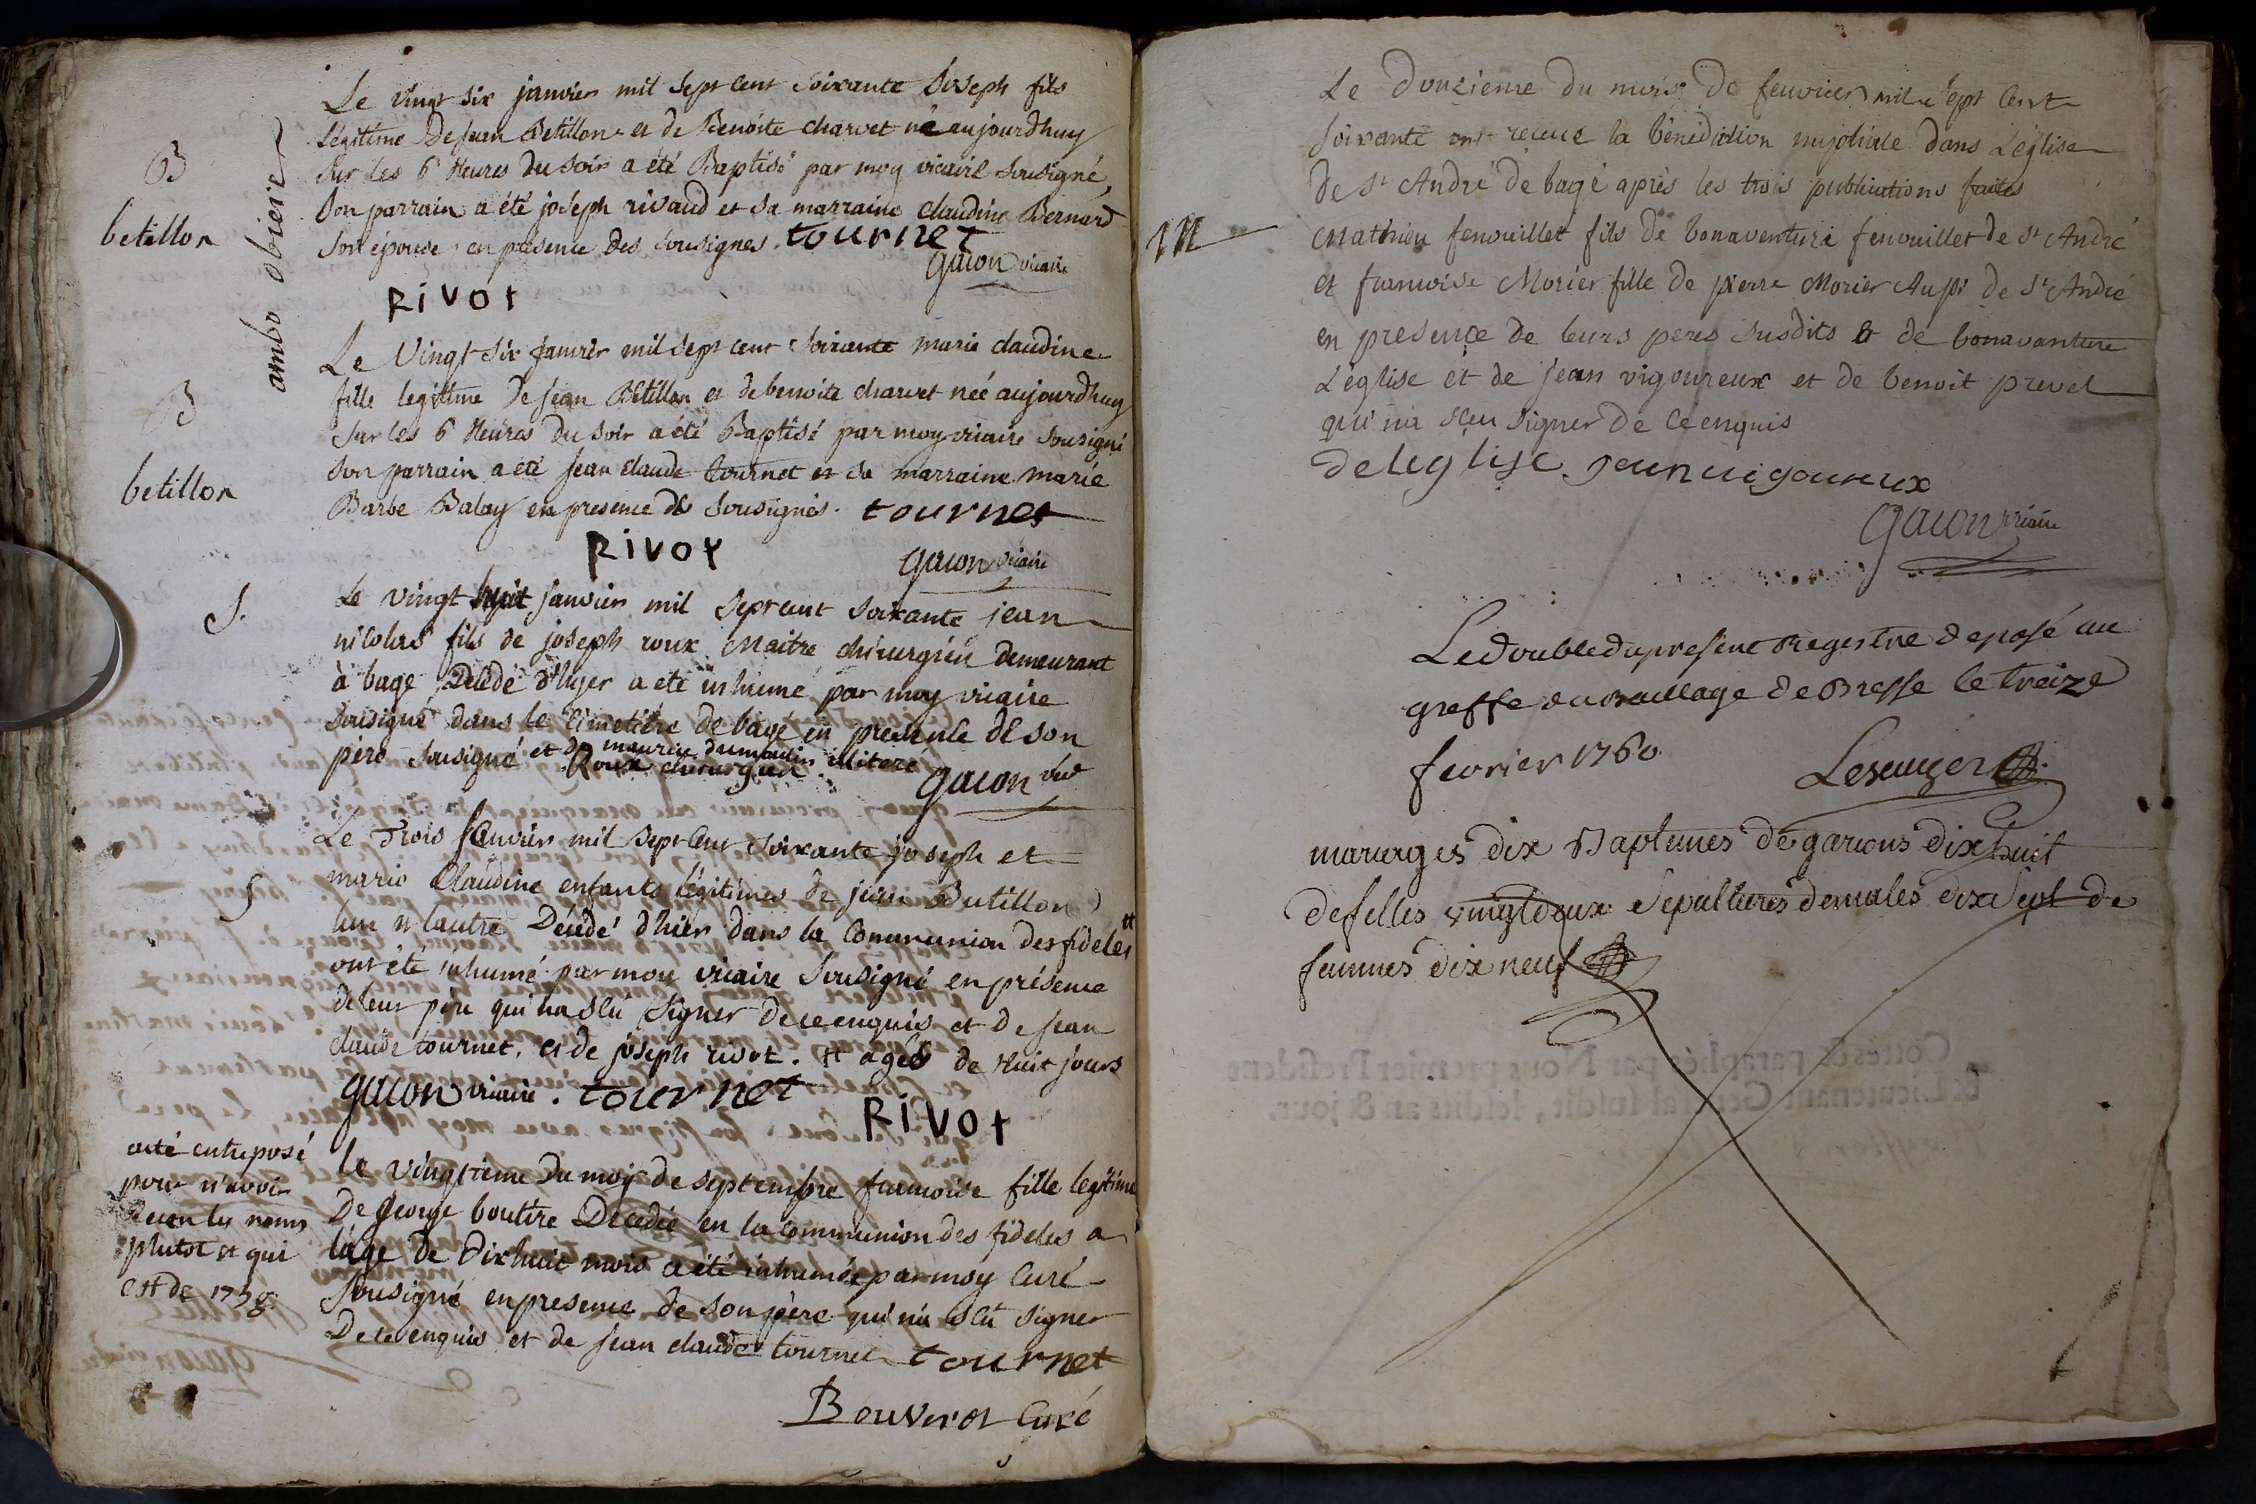 Le vingt six janvier mil sept cent soixante Joseph fils
Légitime De Jean Betillon et de Benoite charvet né aujourdhuy
Sur les 6 Heures du soir a été Baptisé par moy vicaire sousigné,
Son parrain a été joseph rivaud et sa marraine Claudine Bernard
Son épouse en presence des sousignes. tournet
Gacon vicaire
RiVot
B
betillon
ambo obierer
Le Vingt six janvier mil sept cent soixante marie claudine
fille legitime De Jean Betillon et de benoite charvet neé aujourdhuy
Sur les 6 Heures du soir a été Baptisé par moy vicaire sousigné
Son parrain a été Jean claude tournet et sa marraine marie
Barbe Balay en presence des sousignés. tournet
RiVot
Gacon vicaire
B
betillon
S.
Le vingt huit janvier mil sept cent soixante jean
nicolas fils de joseph roux Maitre chirurgien demeurant
à bagé Décédé d'hyer a été inhumé par moy vicaire
sousigné dans le cimetiére de bagé en presence de son
père sousigné et de maurice dumoulin illiteré
Roux chirurgien. Gacon vic
S
Le Trois Janvier mil sept Cent soixante joseph et
marie Claudine enfants légitimes de jean Butillon
lun et lautre Décédé d'hier dans la Communion des fideles #
ont été inhumé par moy vicaire sousigné en présence
de leur père qui na sçû signer de ce enquis et de Jean
claude tournet. et de joseph rivot. # agés de Huit jours
gacon vicaire. tournet
RiVot
acté entreposé
pour n'avoir
reçu les noms
plutot et qui
est de 1759.
le vingtieme du mois de septembre francoise fille legitime
De George boutire Decedée en la communion des fideles a
láge de Dixhuit mois a été inhumée par moy Curé
Sousigné en presence de son père qui na sçû signer
De ce enquis et de Jean claude tournet tournet
Bouverot Curé
Le Douzieme du mois De feuvrier mil sept Cent
soixante ont recue la bénédiction nuptiale dans L'église
De St André de bagé après les trois publications faites
M
Mathieu fenouillet fils de bonaventure fenouillet de St André
et francoise Morier fille de pierre Morier Aussi de St André
en presence de leurs peres susdits & de bonavanture
L'église et de jean vigoureux et de benoit prevel
qui na sçeu signer de ce enquis
deleglise. jean uigoureux
Gacon vicaire
Le double du present Registre deposé au
greffe du Baillage de Bresse le treize
fevrier 1760
mariages dix Baptemes de garcons dix huit
de filles vingt deux Sepultures de males dix Sept de
femmes dix neuf
Cottés & paraphés par Nous premier President
& Lieutenant General susdit, lesdits an & jour.